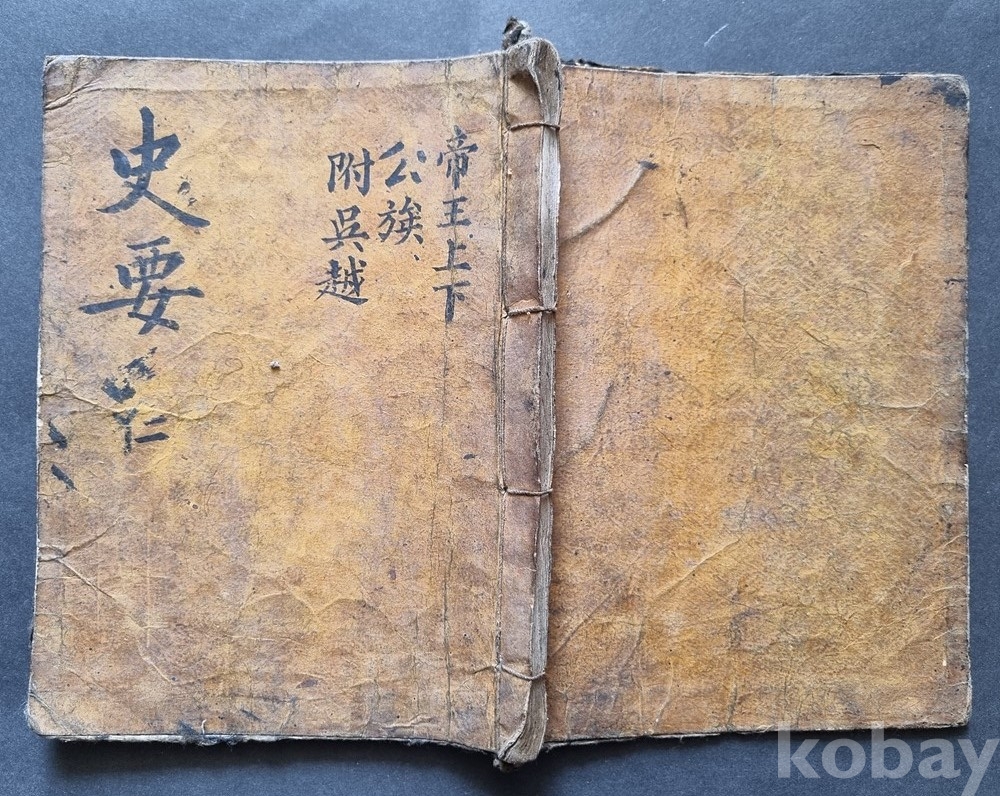 帝王上下
公族
附吳越
史要
kobay